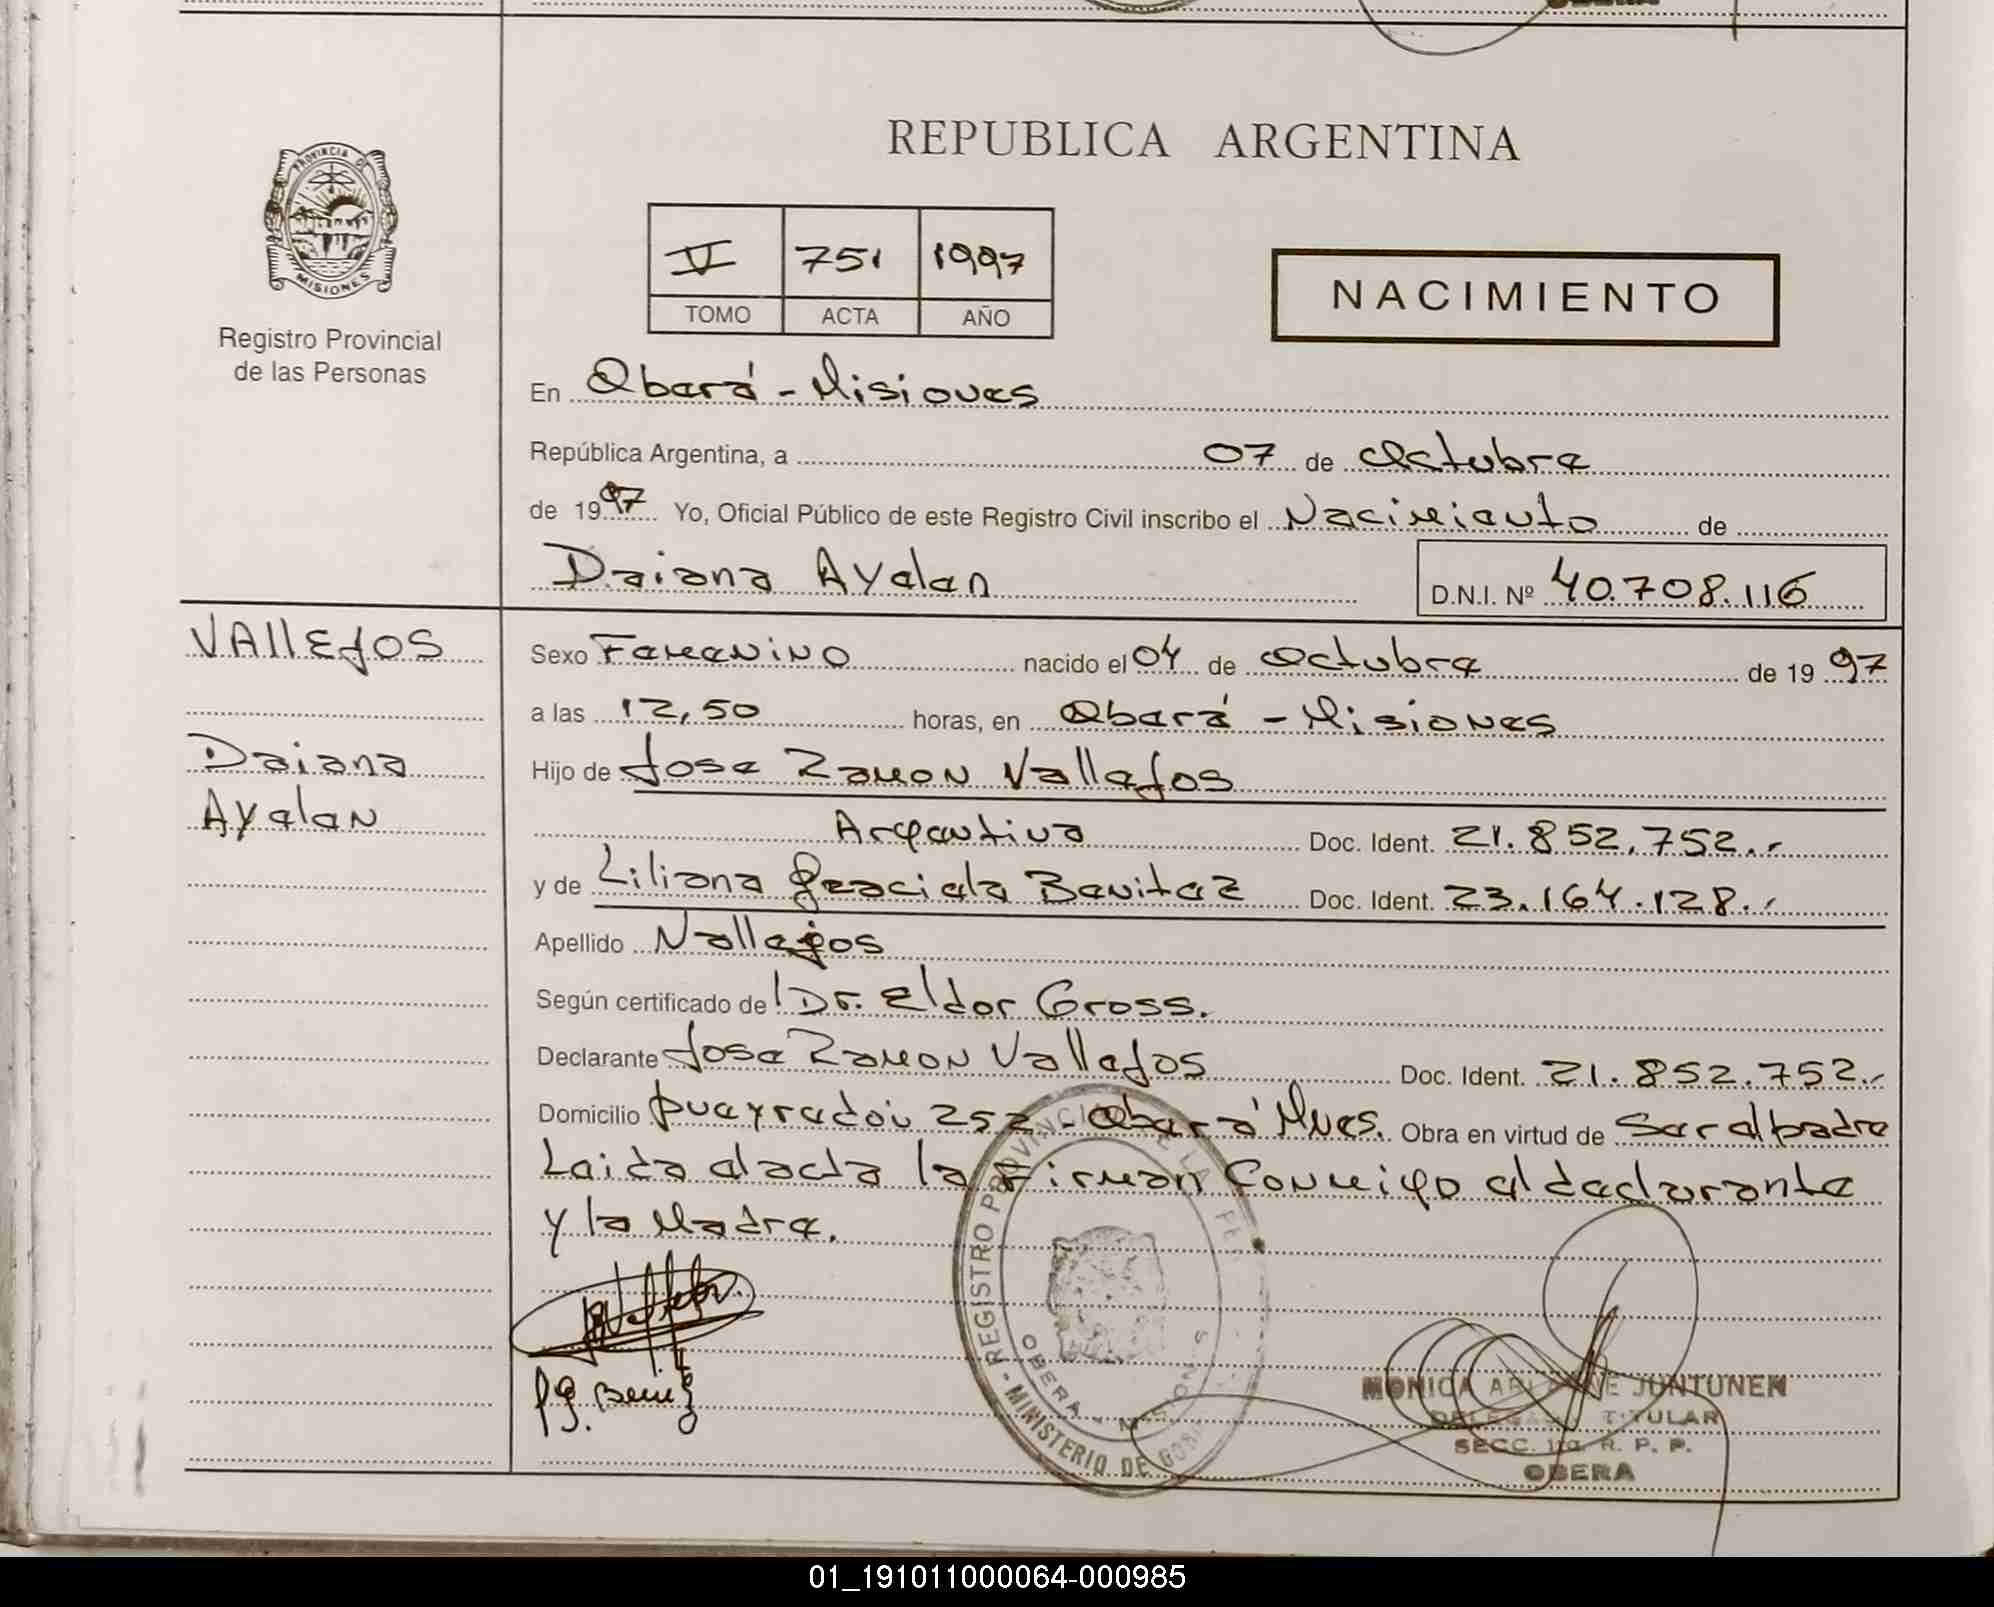 OBERA
REPUBLICA ARGENTINA
PROVINCIA DE
MISIONES
Registro Provincial
de las Personas
V 751 1997
TOMO ACTA AÑO
NACIMIENTO
En Oberá - Misiones
República Argentina, a 07 de Octubre
de 1997 Yo, Oficial Público de este Registro Civil inscribo el Nacimiento de
Daiana Ayelen D.N.I. Nº 40.708.116
VALLEJOS
Daiana
Ayelen
Sexo Femenino nacido el 04 de Octubre de 1997
a las 12,50 horas, en Oberá - Misiones
Hijo de Jose Ramon Vallejos
Argentino Doc. Ident. 21.852.752.-
y de Liliana Graciela Benitez Doc. Ident. 23.164.128.-
Apellido Vallejos
Según certificado de Dr. Eldor Gross.
Declarante Jose Ramon Vallejos Doc. Ident. 21.852.752.-
Domicilio Pueyrredón 252 - Oberá Mnes. Obra en virtud de Ser el padre
Leida el acta la Firman Conmigo el declarante
y la Madre.
L.G. Benitez
REGISTRO PROVINCIAL DE LAS PE
OBERA - MISIONES
MINISTERIO DE GOBI
MONICA NE JUNTUNEN
DELEGADA TITULAR
SECC. 1ra. R. P. P.
OBERA
01_191011000064-000985